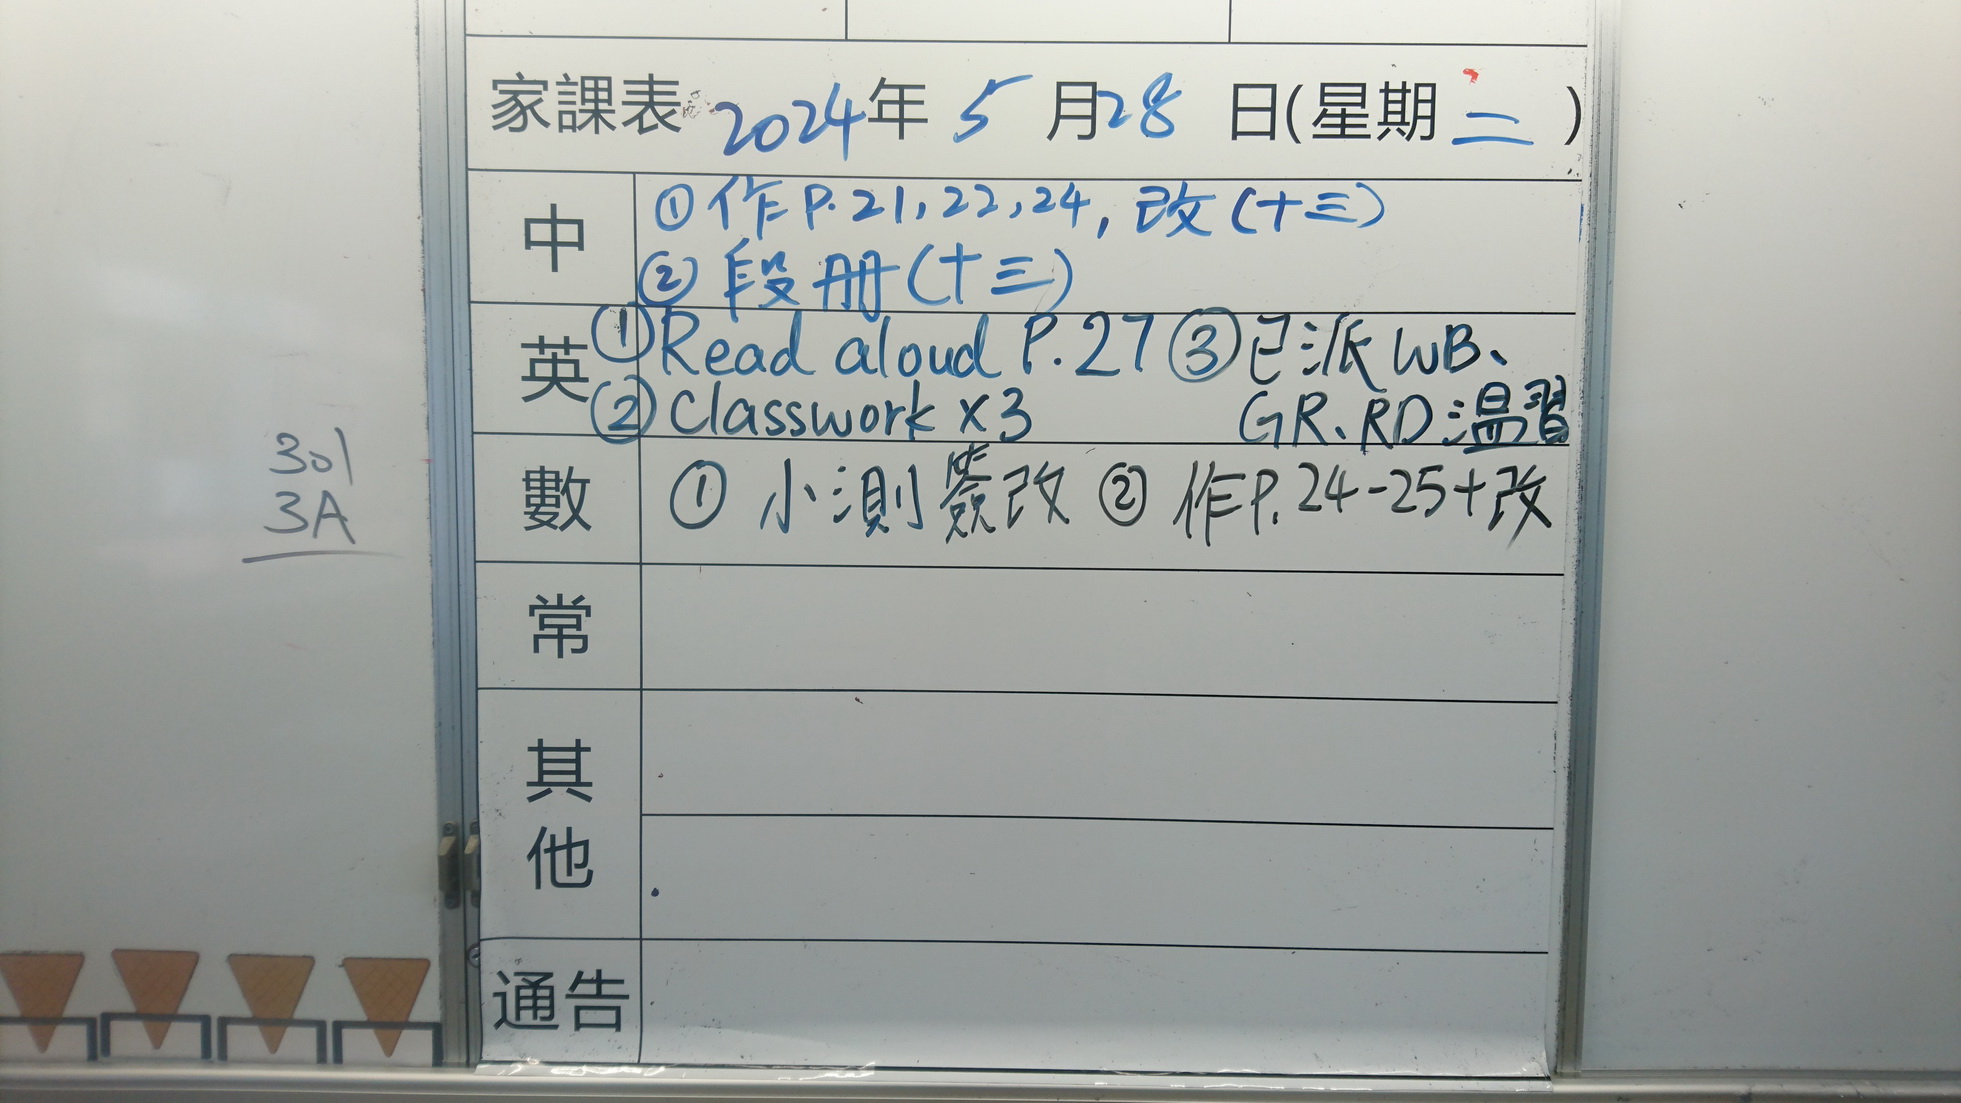 家課表 2024年 5月28日(星期二)
中
①作P.21,22,24,改(十三)
②段册(十三)
英
①Read aloud P.27 ③已派WB、
②Classwork x3 GR、RD溫習
數
①小測簽改 ②作P.24-25+改
常
其他
通告
301
3A